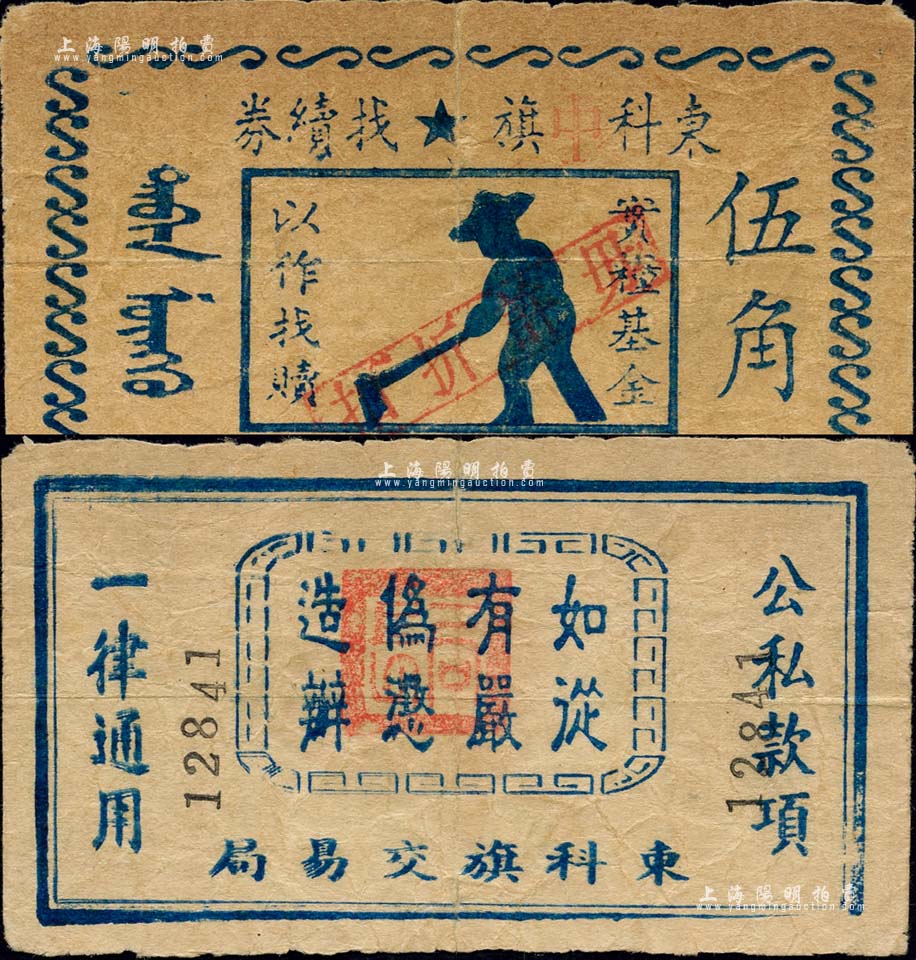 上海陽明拍賣
www.yangmingauction.com
東科中旗★找續券
伍角
實 基金
以作找贖
上海陽明拍賣
www.yangmingauction.com
公私款項
12841
如有偽造
從嚴懲辦
12841
一律通用
東科旗交易局
上海陽明拍賣
www.yangmingauction.com